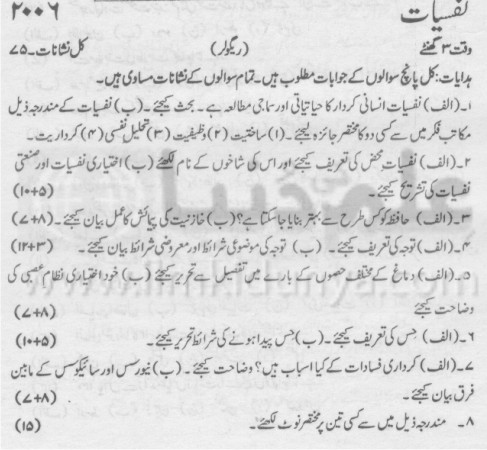 نفسیات ۲۰۰۶
وقت ۳ گھنٹے (ریگولر) کل نشانات۔ ۷۵
ہدایات: کل پانچ سوالوں کے جوابات مطلوب ہیں۔ تمام سوالوں کے نشانات مساوی ہیں۔
۱۔ (الف) نفسیات انسانی کردار کا حیاتیاتی اور سماجی مطالعہ ہے۔ بحث کیجئے۔ (ب) نفسیات کے مندرجہ ذیل
مکاتب فکر میں سے کسی دو کا مختصر جائزہ لیجئے۔ (۱) ساختیت (۲) وظیفیت (۳) تحلیل نفسی (۴) کرداریت۔
۲۔ (الف) نفسیات محض کی تعریف کیجئے اور اس کی شاخوں کے نام لکھئے (ب) اختیاری نفسیات اور صنعتی
نفسیات کی تشریح کیجئے۔ (۱۰+۵)
۳۔ (الف) حافظہ کو کس طرح سے بہتر بنایا جا سکتا ہے؟ (ب) خازنیت کی پیمائش کا عمل بیان کیجئے۔ (۷+۸)
۴۔ (الف) توجہ کی تعریف کیجئے۔ (ب) توجہ کی موضوعی شرائط اور معروضی شرائط بیان کیجئے۔ (۱۲+۳)
۵۔ (الف) دماغ کے مختلف حصوں کے بارے میں تفصیل سے تحریر کیجئے (ب) خود اختیاری نظام عصبی کی
وضاحت کیجئے (۷+۸)
۶۔ (الف) حس کی تعریف کیجئے۔ (ب) حس پیدا ہونے کی شرائط تحریر کیجئے۔ (۱۰+۵)
۷۔ (الف) کرداری فسادات کے کیا اسباب ہیں؟ وضاحت کیجئے۔ (ب) نیورسس اور سائیکوسس کے مابین
فرق بیان کیجئے۔ (۷+۸)
۸۔ مندرجہ ذیل میں سے کسی تین پر مختصر نوٹ لکھئے۔ (۱۵)
علم کی دنیا
www.ilmkidunya.com